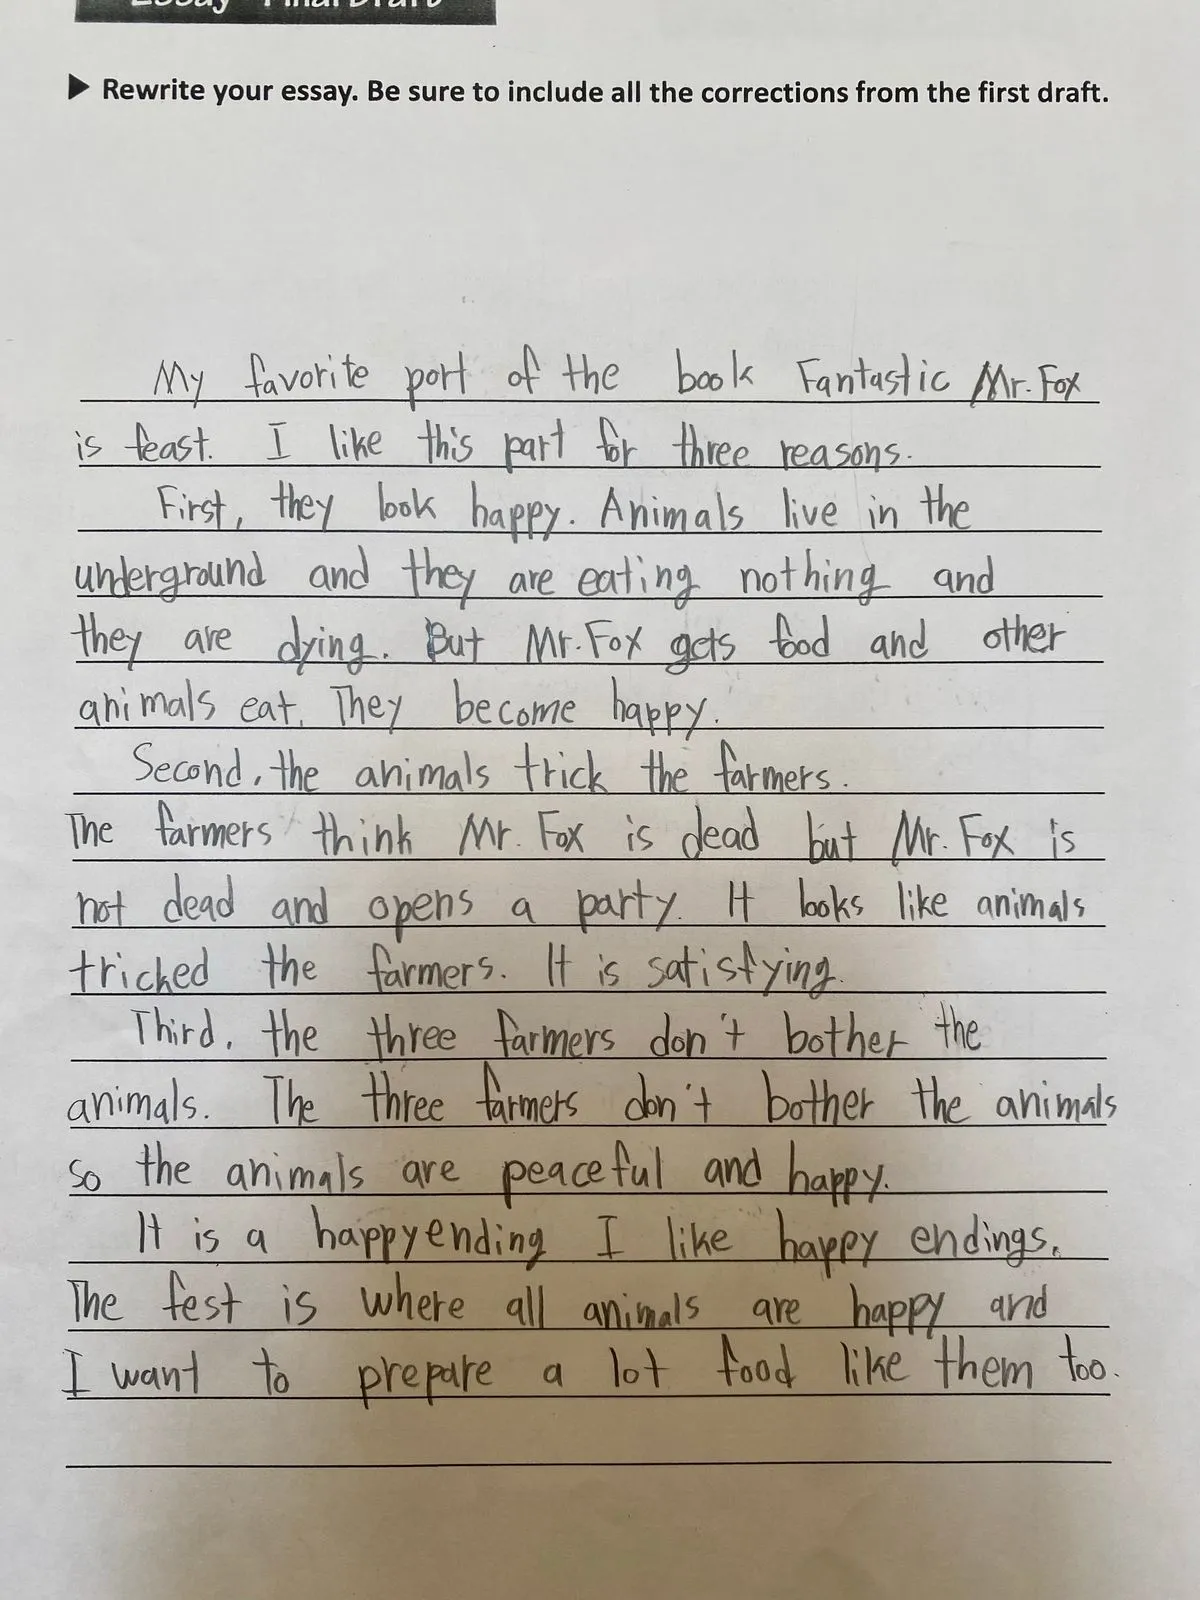 Essay Final Draft
▶ Rewrite your essay. Be sure to include all the corrections from the first draft.
My favorite port of the book Fantastic Mr. Fox
is feast. I like this part for three reasons.
First, they look happy. Animals live in the
underground and they are eating nothing and
they are dying. But Mr. Fox gets food and other
animals eat. They become happy.
Second, the animals trick the farmers.
The farmers think Mr. Fox is dead but Mr. Fox is
not dead and opens a party. It looks like animals
tricked the farmers. It is satisfying.
Third, the three farmers don't bother the
animals. The three farmers don't bother the animals
so the animals are peaceful and happy.
It is a happyending I like happy endings.
The fest is where all animals are happy and
I want to prepare a lot food like them too.